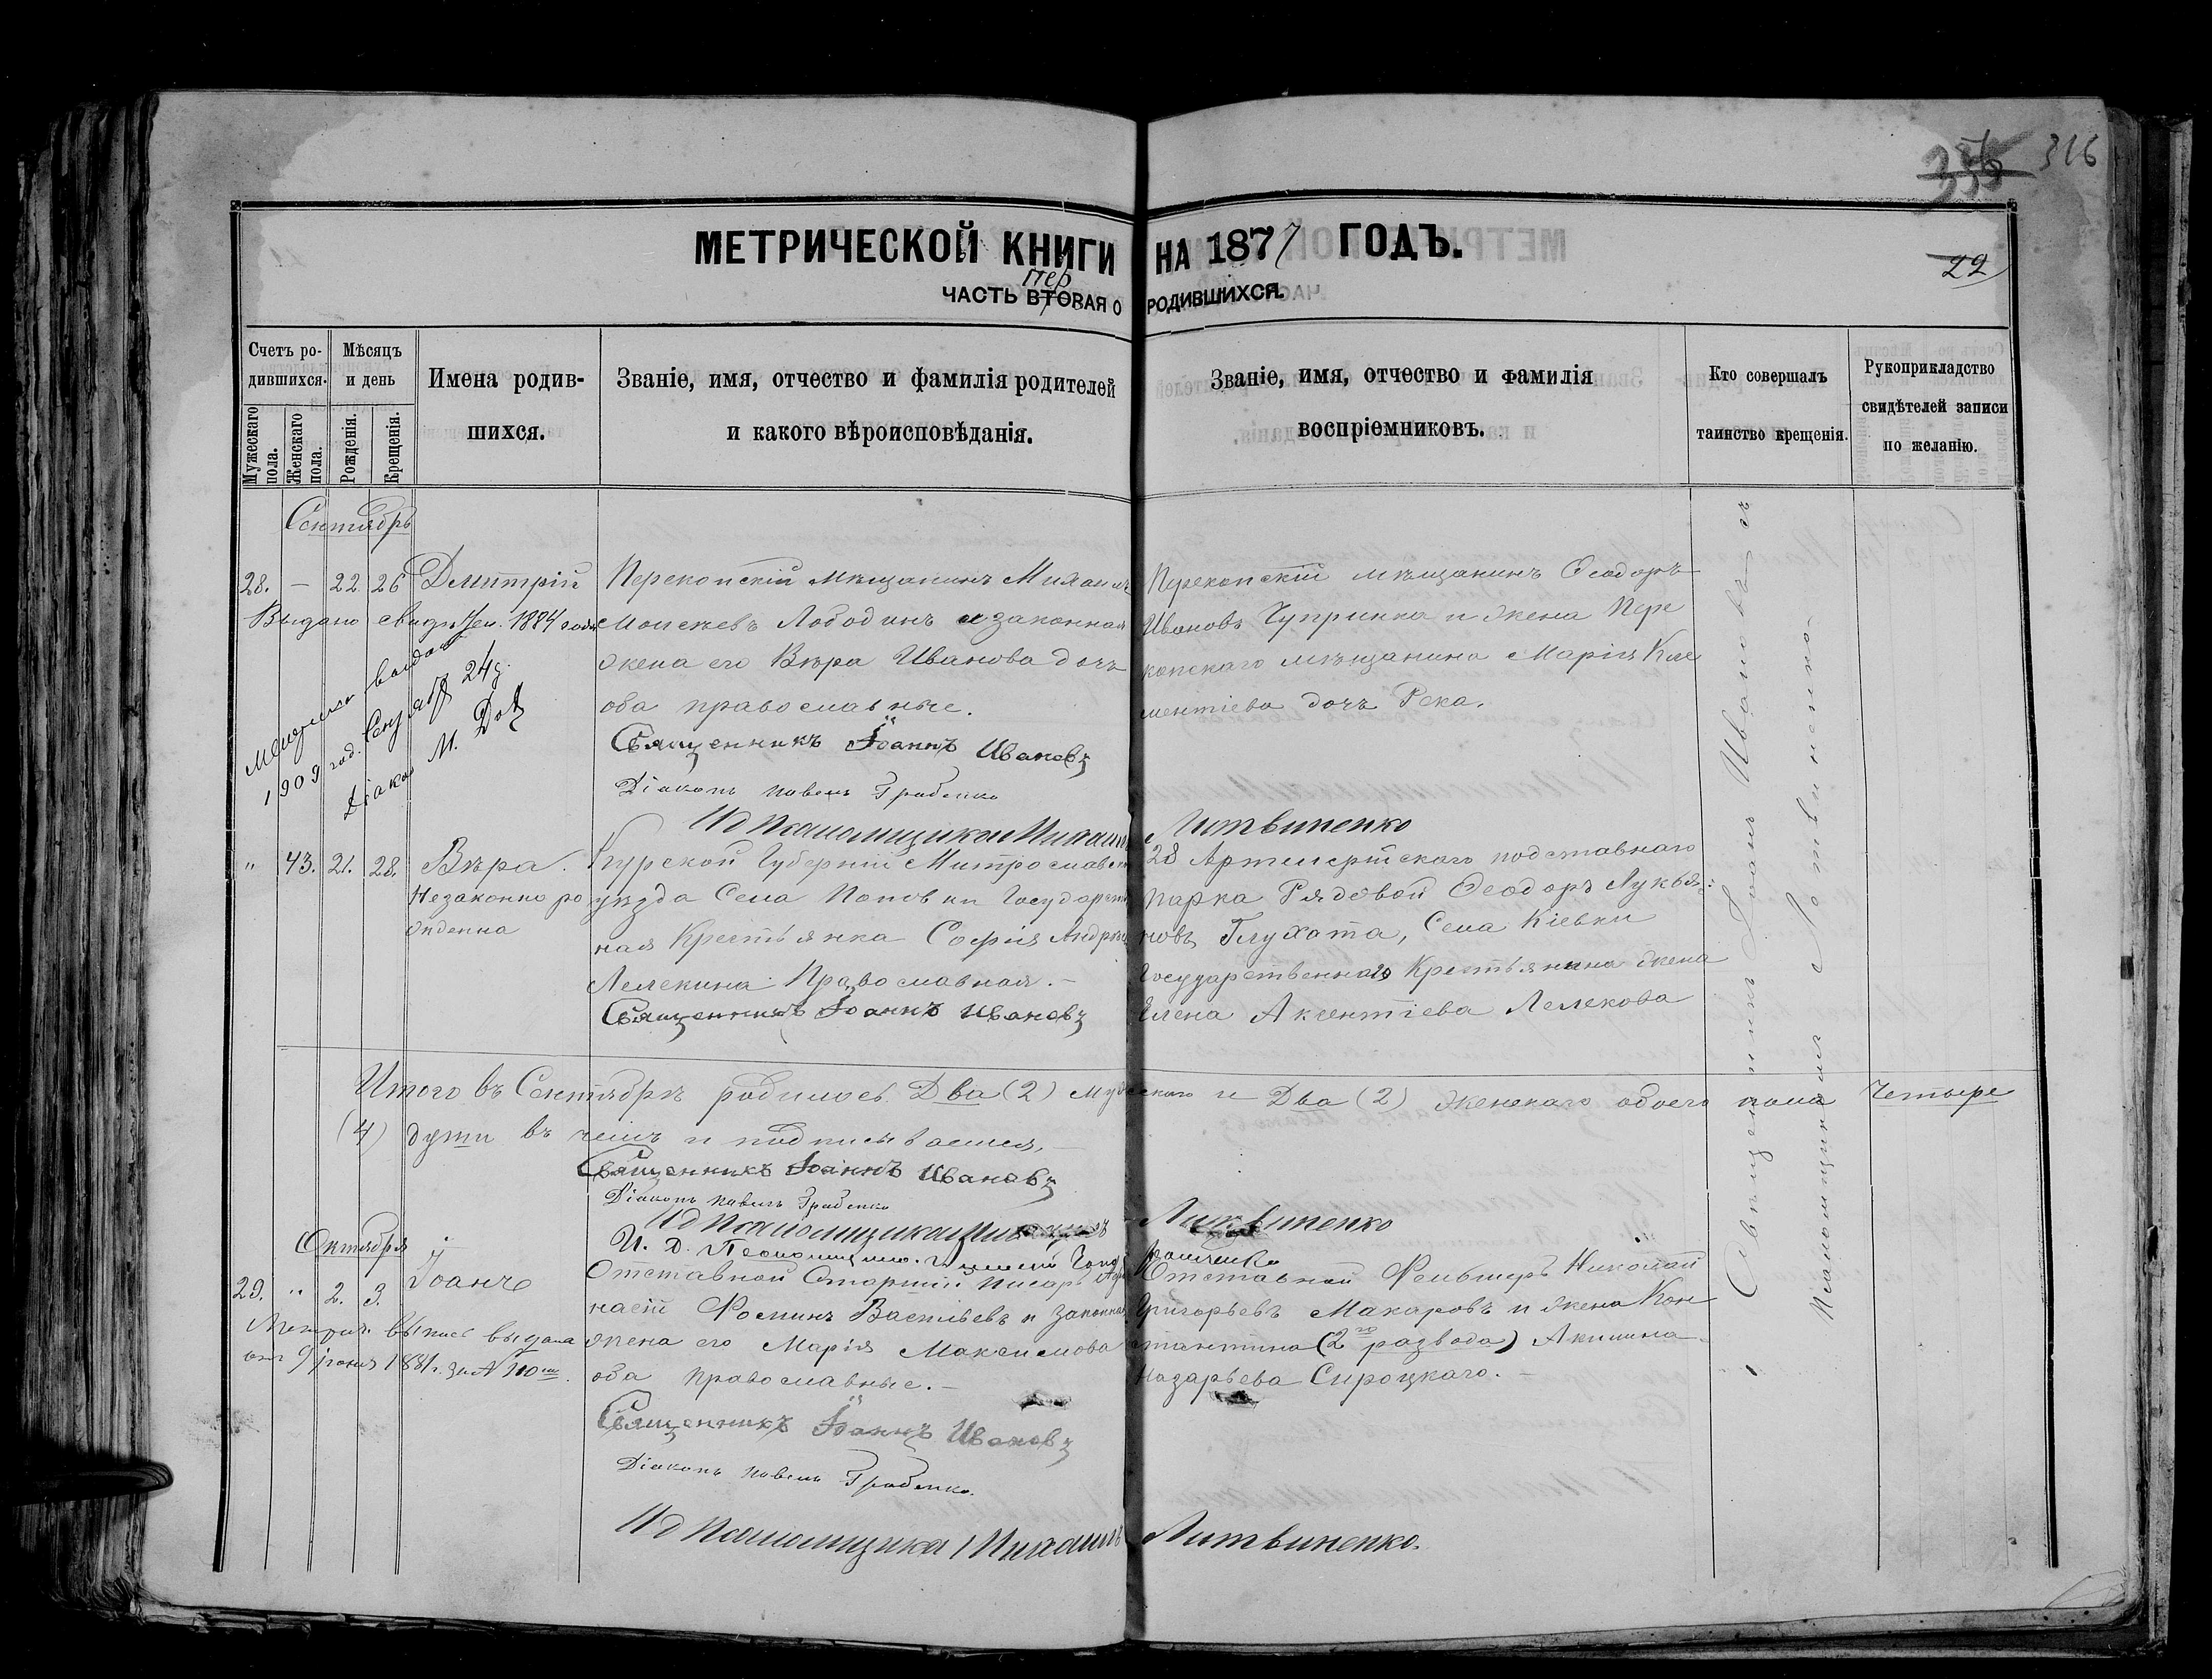 316
МЕТРИЧЕСКОЙ КНИГИ НА 1877 ГОДЪ.
22
пер
ЧАСТЬ ВТОРАЯ О РОДИВШИХСЯ.
Счетъ ро-
дившихся.
Мужескаго пола.
Женскаго пола.
Мѣсяцъ
и день
Рожденія.
Крещенія.
Имена родив-
шихся.
Званіе, имя, отчество и фамилія родителей
и какого вѣроисповѣданія.
Званіе, имя, отчество и фамилія
воспріемниковъ.
Кто совершалъ
таинство крещенія.
Рукоприкладство
свидѣтелей записи
по желанію.
Сентябрь
28. — 22 26 Дмитрій
Выдано свидѣт. 1884 года
1909 год. Сент 24 д.
Діакон М.
Перекопскій мѣщанинъ Михаилъ
Моисеевъ Лободинъ и законная
жена его Вѣра Иванова дочь
оба православные.
Священникъ Іоаннъ Ивановъ
Діаконъ Павелъ Грабенко
Ид Псаломщика Михаилъ Литвиненко
Перекопскій мѣщанинъ Ѳеодоръ
Ивановъ Чупринка и жена Пере
копскаго мѣщанина Марія Кле
ментіева дочь Река.
" 43. 21. 28. Вѣра.
Незаконно ро
жденна
Курской Губерніи
уѣзда Села Поповки Государствен
ная Крестьянка Софія
Лелекина Православная. —
Священникъ Іоаннъ Ивановъ
28 Артилерійскаго подставнаго
парка Рядовой Ѳеодоръ Лукья-
новъ Глухота, Села Кіевки
Государственнаго Крестьянина жена
Елена Аксентіева Лелекова
Итого въ Сентябрѣ родилось Два (2) мужескаго и Два (2) женскаго обоего пола Четыре
(4) души въ чемъ и подписываемся. —
Священникъ Іоаннъ Ивановъ
Діаконъ Павелъ Грабенко
Ид Псаломщика Литвиненко
И. Д. Псаломщика
Октября
29. " 2. 3. Іоаннъ
выпись выдана
9 іюня 1881 г. за № 110
Отставной Старшій писарь
насій Фоминъ Васильевъ и законная
жена его Марія Максимова
оба православные. —
Священникъ Іоаннъ Ивановъ
Діаконъ Павелъ Грабенко.
Ид Псаломщика Михаилъ Литвиненко.
Отставной Фельшеръ Николай
Григорьевъ Макаровъ и жена Кон
стантина (2го развода) Акилина
Назарьева Сироцкаго. —
Священникъ Іоаннъ Ивановъ съ
Псаломщикомъ Литвиненко